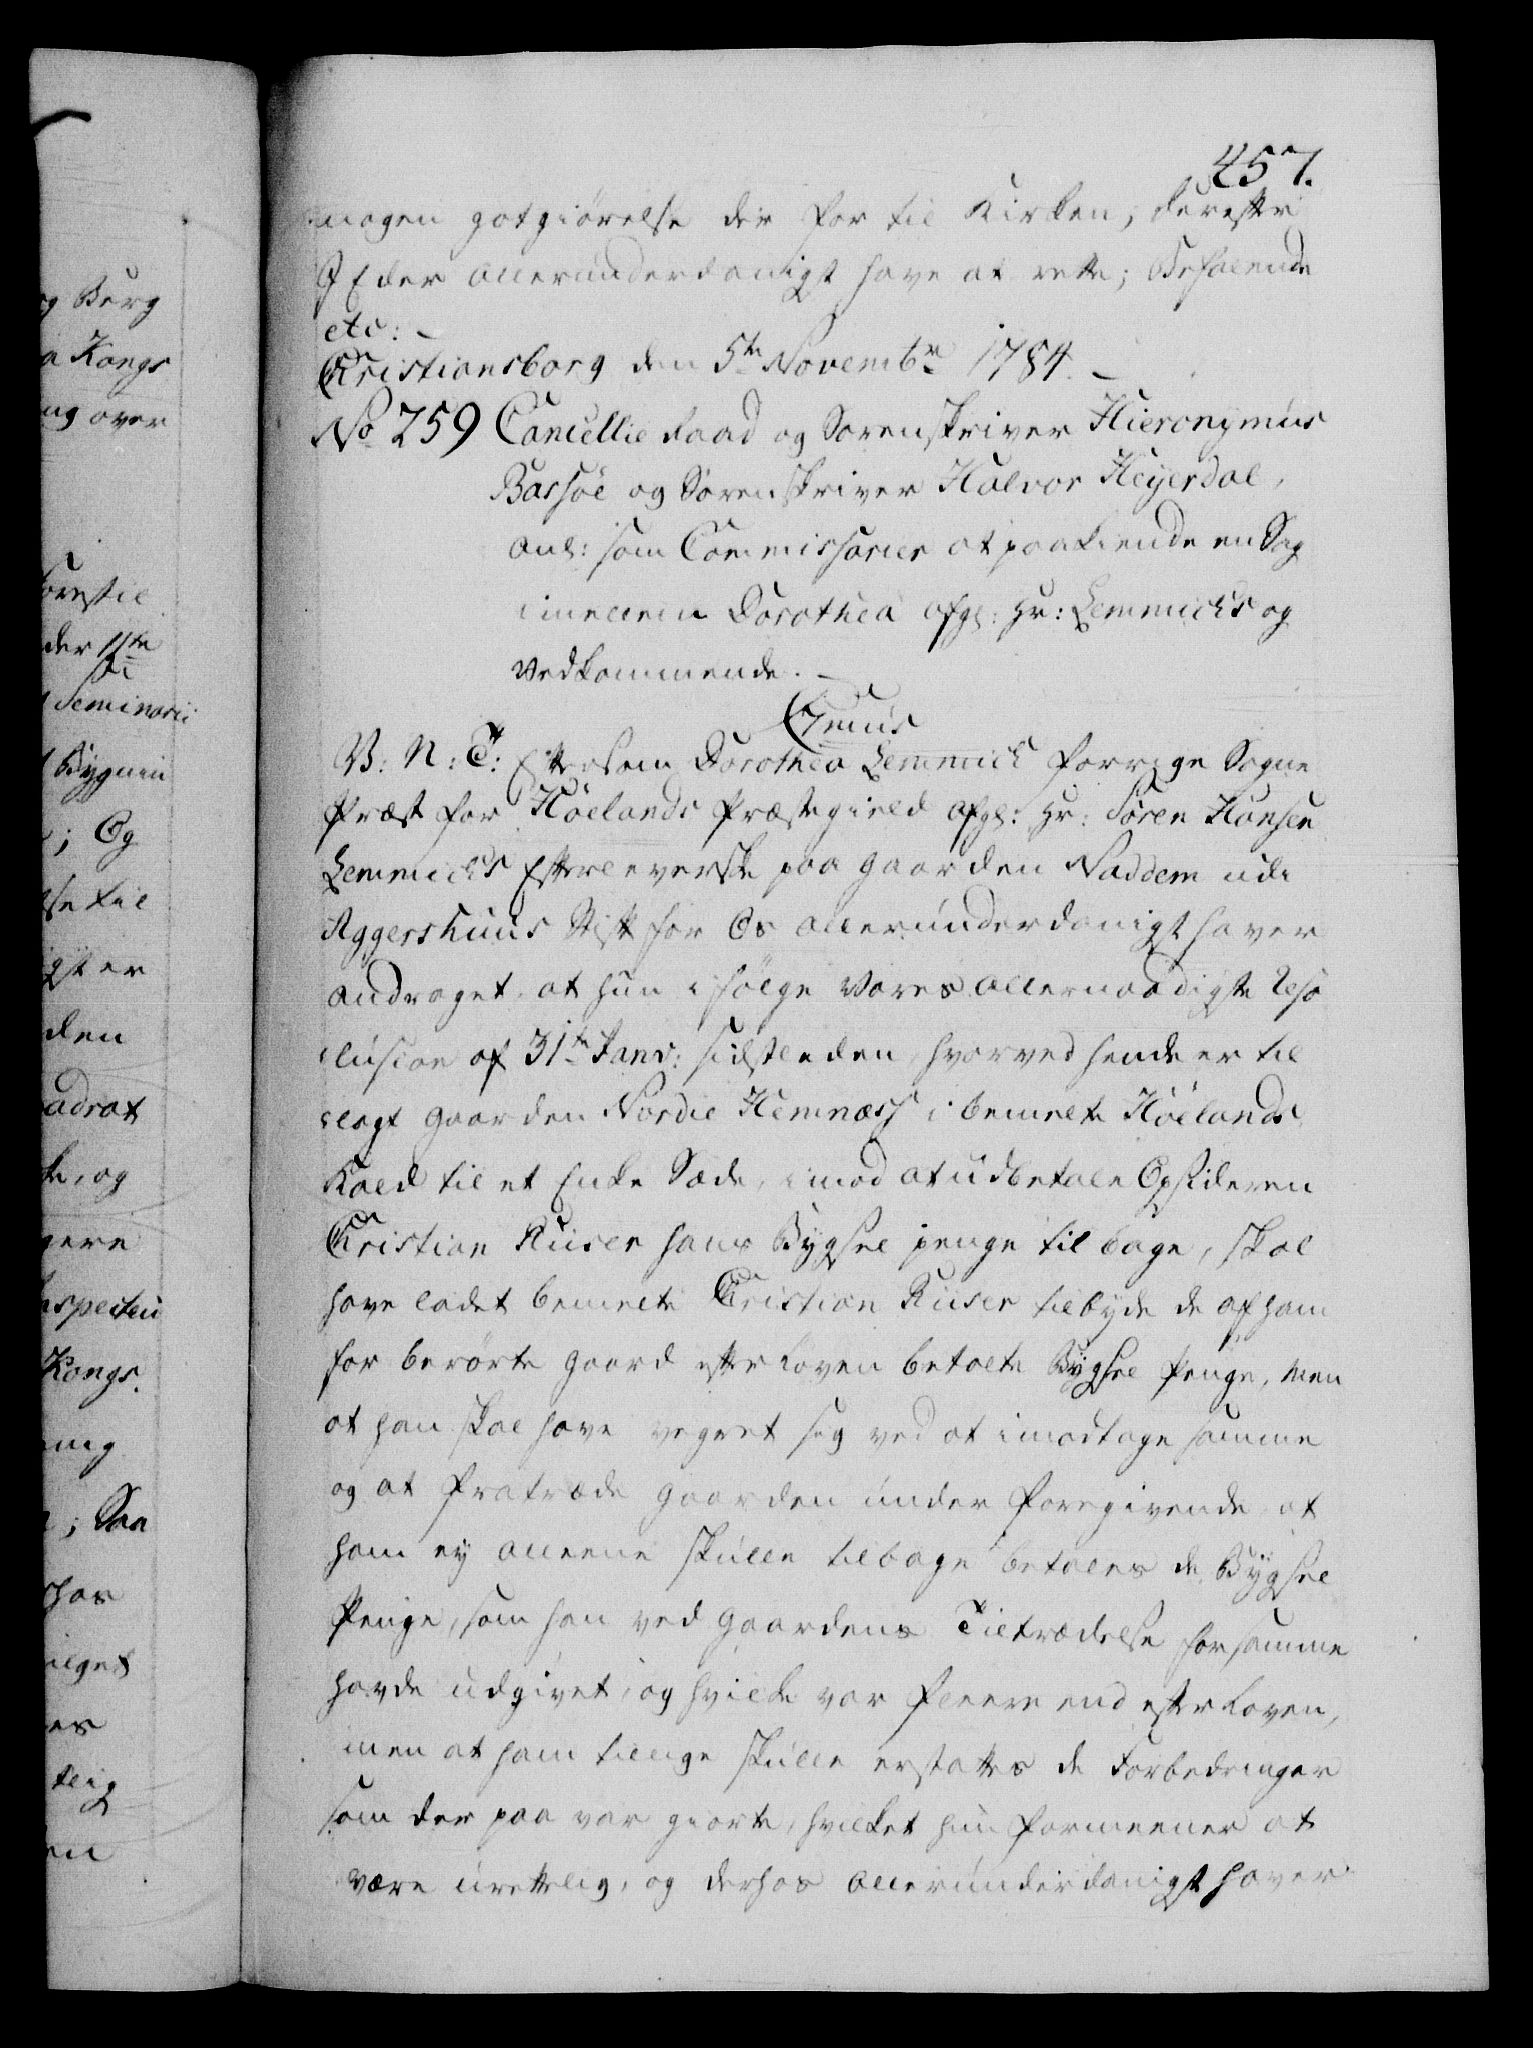 457.
nogen godtgiørelse der for til Kirken; derefter
I Eder allerunderdanigst have at rette; Befalende
etc: –
Christiansborg den 5te Novembr 1784. –
No 259 Cancellie Raad og Sorenskriver Hieronymus
Bassøe og Sorenskriver Halvor Heyerdal,
anl: som Commissarier at paakiende en Sag
imellem Dorothea afgl: Hr: Lemmichs og
Vedkommende. –
V: N: T: Eftersom Dorothea Lemmich forrige Sogne
Præst for Høelands Præstegield afgl: Hr: Søren Hansen
Lemmichs Efterleverske paa Gaarden Naddem udi
Aggershuus Stift for Os allerunderdanigst haver
andraget, at hun i følge Vores allernaadigste Reso
lution af 31te Janv: sidstleden, hvorved hende er til
lagt Gaarden Nordie Hemnæss i bemelte Høelands
Kald til et Enke Sæde, imod at udbetale Opsideren
Christian Riiser hans Bygsel penge tilbage, skal
have ladet bemelte Christian Riiser tilbyde de af ham
for berørte Gaard efter Loven betalte Bygsel Penge, men
at han skal have vegret sig ved at imodtage samme
og at fratræde Gaarden under Foregivende, at
ham ey alleene skulle tilbage betales de Bygsel
Penge, som han ved Gaardens Tiltrædelse for samme
havde udgivet, og hvilke var fleere end efter Loven,
men at ham tillige skulle erstattes de Forbedringer
som der paa var giorte, hvilket hun formeener at
være urettelig, og derhos allerunderdanigst haver
og Berg
a Kongs
ng over
forestil
der 11te
Seminarii
Bygnin
; Og
den
adrat
, og
Kongs.
; Saa